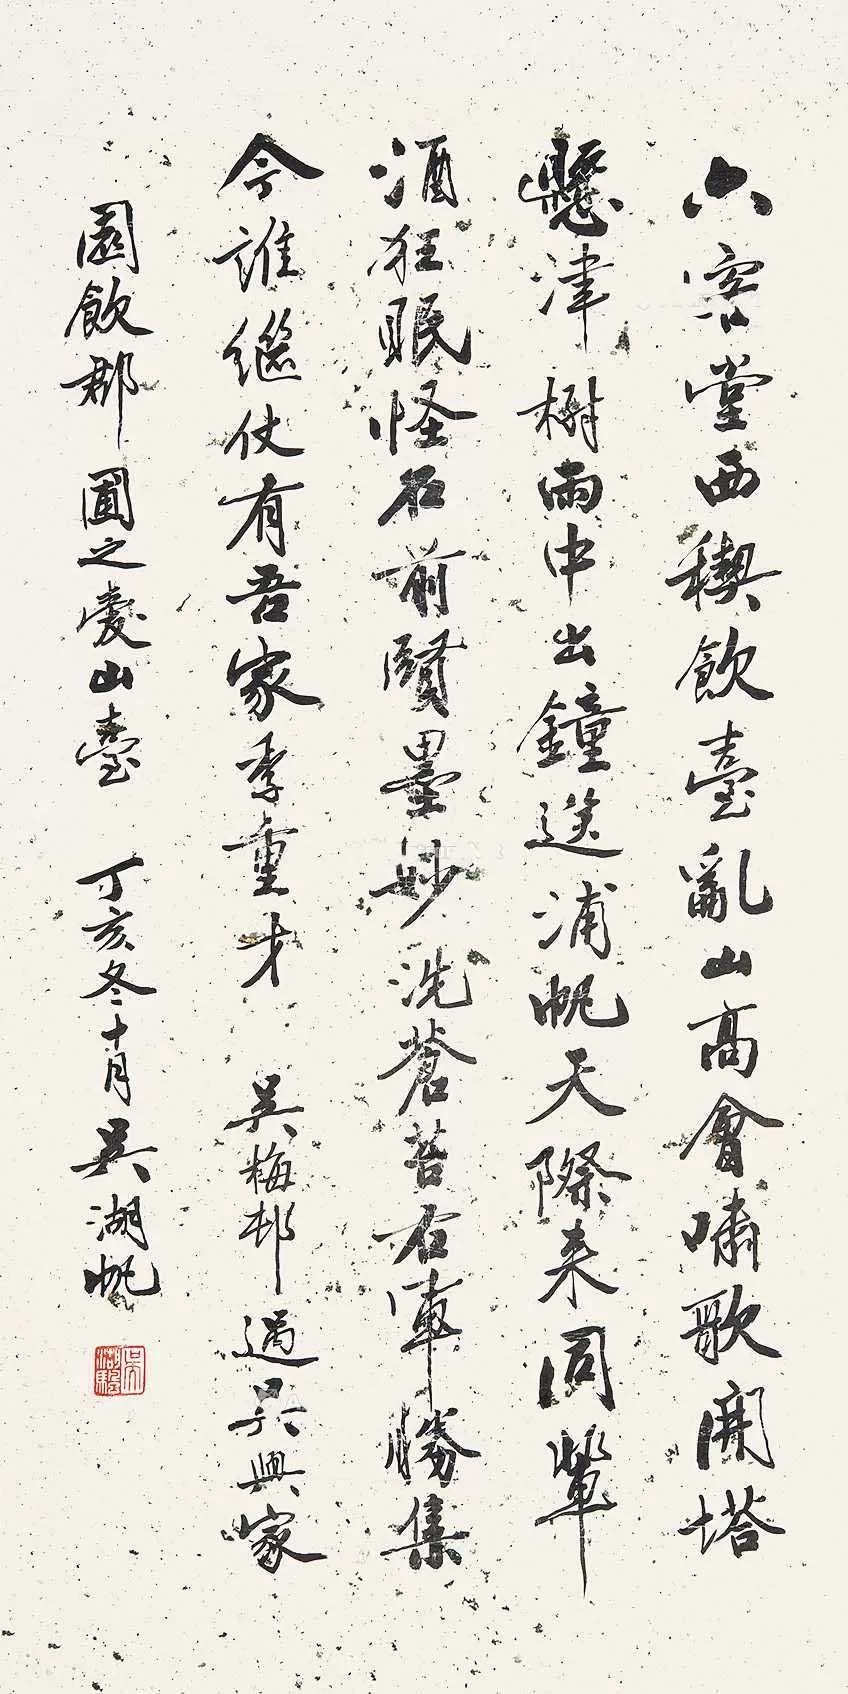 六客堂西稧飲臺亂山高會嘯歌開塔
懸津樹雨中出鐘送浦帆天際来同輩
酒狂眠怪石前賢墨妙洗蒼苔右軍勝集
今誰繼仗有吾家季重才 吳梅邨過吳興家
園飲郡圃之愛山臺 丁亥冬十月吳湖帆
吳湖颿